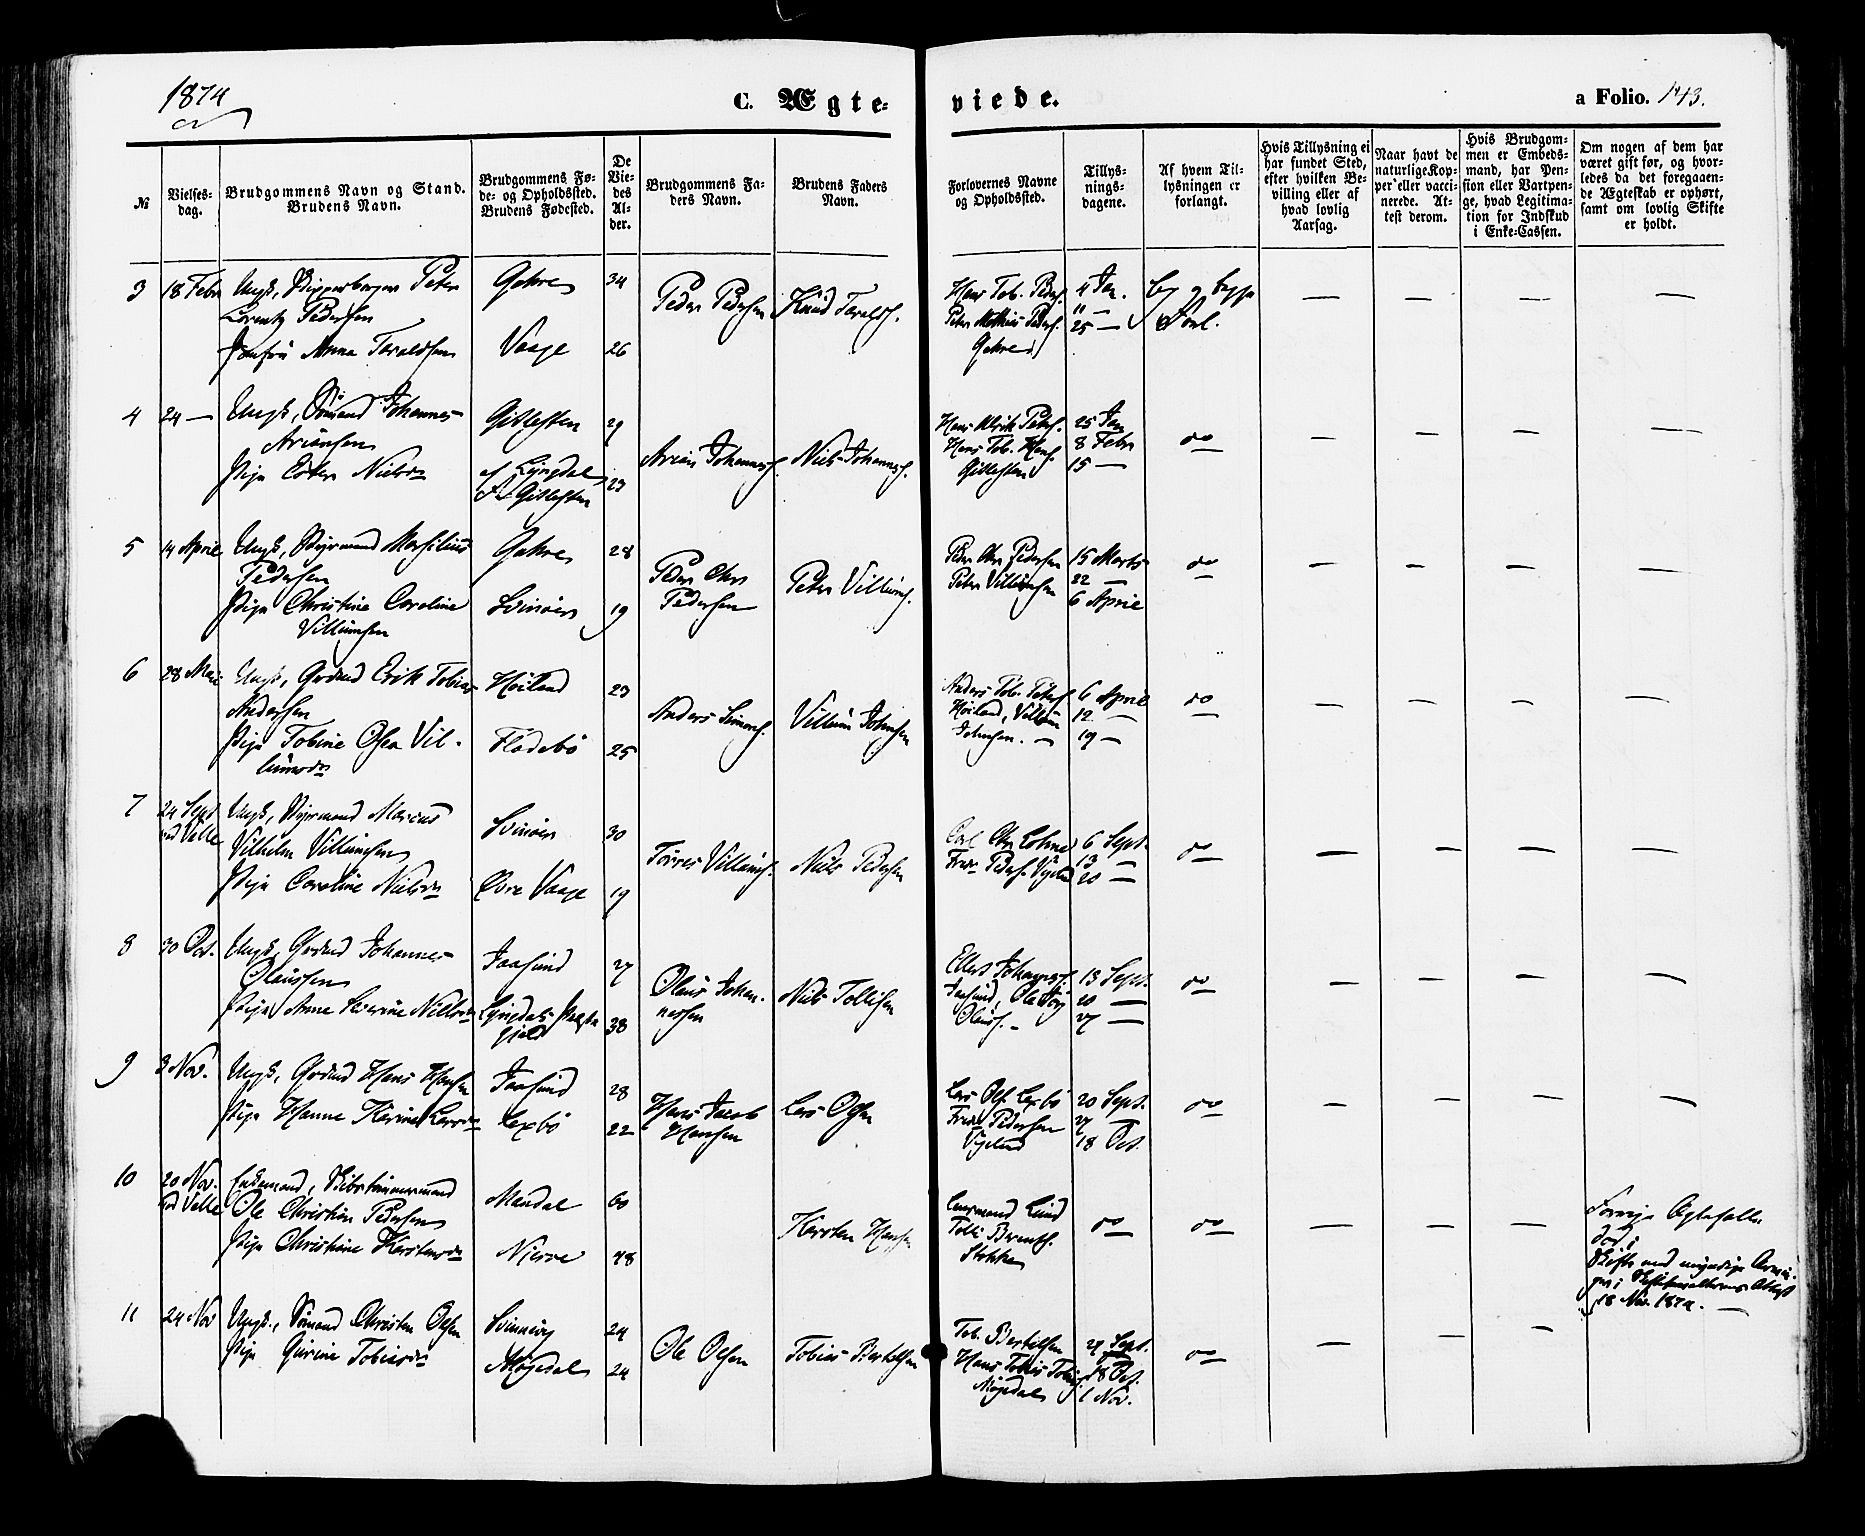 1874
C. Ægte-
viede.
a Folio. 143.
№
Vielses-
dag.
Brudgommens Navn og Stand.
Brudens Navn.
Brudgommens Fø-
de- og Opholdssted.
Brudens Fødested.
De
Vie-
des
Al-
der.
Brudgommens Fa-
ders Navn.
Brudens Faders
Navn.
Forlovernes Navne
og Opholdssted.
Tillys-
nings-
dagene.
Af hvem Til-
lysningen er
forlangt.
Hvis Tillysning ei
har fundet Sted,
efter hvilken Be-
villing eller af
hvad lovlig
Aarsag.
Naar havt de
naturlige Kop-
per eller vacci-
nerede. At-
test derom.
Hvis Brudgom-
men er Embeds-
mand, har Pen-
sion eller Vartpen-
ge, hvad Legitima-
tion for Indskud
i Enke-Cassen.
Om nogen af dem har
været gift før, og hvor-
ledes da det foregaaen-
de Ægteskab er ophørt,
samt om lovlig Skifte
er holdt.
3
18 Febr
Ungk, Peter
Lorentz Pedersen
Jomfru Anna Taraldsen
Gahre
Vaage
34
26
Peder Pedersen
Knud Taralds.
Hans Tob. Peders.
Peter Mathias Peders.
Gahre
4 Jan.
11 —
25 —
Begge
Forl.
— — — —
4
24 —
Ungk, Sømand Johannes
Ariansen
Pige Nielsdr
Gitlesten
af Lyngdal
Gitlesten
29
23
Arian Johanness.
Niels Johanness.
Hans Ulrik Peters.
Hans Tob. Hans.
Gitlesten
25 Jan
8 Febr
15 —
do
— — — —
5
14 April
Ungk, Styrmand Marsilius
Pedersen
Pige Christine Caroline
Villumsen
Gahre
Svinøer
28
19
Peder Chr
Pedersen
Peter Villums.
Peder Chr Pedersen
Peter Villumsen
15 Marts
22 —
6 April
do
— — — —
6
28 Mai
Ungk, Grdmd Erik Tobias
Andersen
Pige Tobine Olea Vil-
lumsdr
Høiland
Flodebø
23
25
Anders Simons.
Villum Johnsen
Anders Tob. Peters.
Høiland, Villum
Johnsen. —
6 April
12 —
19 —
do
— — — —
7
24 Sept
ved Valle
Ungk, Styrmand Marcus
Vilhelm Villumsen
Pige Caroline Nielsdr
Svinøer
Øvre Vaage
30
19
Torres Villums.
Niels Pedersen
Carl Chr Lohne
Fredr Peders. Vigeland
6 Sept.
13 —
20 —
do
— — — —
8
30 Oct.
Ungk, Grdmd Johannes
Olaussen
Pige Anne Severine Nielsdr
Jaasund
Lyngdals Præste
gjeld
27
38
Olaus Johan-
nessen
Niels Tollifsen
Ellert Johanness.
Jaasund, Ole Torj
Olaus. —
13 Sept.
20 —
27 —
do
— — — —
9
3 Nov.
Ungk, Grdmd Hans Hansen
Pige Hanne Karine Larsdr
Jaasund
Lexbø
28
22
Hans Jacob
Hansen
Lars Olsen
Lars Ols. Lexbø
Fredr Pedersen
Vigeland
20 Sept.
27 —
18 Oct.
do
— — — —
10
20 Nov.
ved Valle
Enkemand, Skibstømmermand
Ole Christian Pedersen
Pige Christine Karstensdr
Mandal
Njerve
60
48
Karsten Hansen
Lensmand Lund
Tolli Berents.
Stokke
do
do
— — —
Forrige Ægtefælle
død;
Skifte med myndige Arvin-
ger; Skifteforvalterens Attest
18 Nov. 1874. —
11
24 Nov
Ungk., Sømand Christen Olsen
Pige Gurine Tobiasdr
Svinevig
Møgedal
24
24
Ole Olsen
Tobias Bertelsen
Tob. Bertelsen
Hans Tobias Tobias.
Møgedal
27 Sept.
18 Oct.
1 Nov.
do
— — —